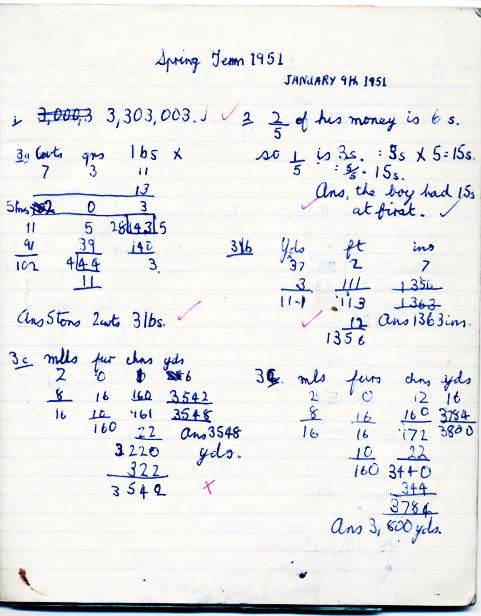 Spring Term 1951
JANUARY 9th 1951
1. 3,000,3 3,303,003.
2 2/5 of his money is 6s.
so 1/5 is 3s. : 3s × 5 = 15s.
:- 15s.
Ans, the boy had 15s
at first.
3a Cwts qrs lbs ×
7 3 11
13
5tns 2 0 3
11 5 28 143 5
91 39 140
102 4 44 3
11
Ans 5tons 2cwts 3lbs.
3b Yds ft ins
37 2 7
3 111 1356
111 113 1363
12 Ans 1363ins.
1356
3c mls fur chns yds
2 0 1 6
8 16 160 3542
16 10 161 3548
160 22 Ans 3548
3220 yds.
322
3542
3c mls furs chns yds
2 0 12 16
8 16 160 3784
16 16 172 3800
10 22
160 3440
344
3784
Ans 3,800yds.